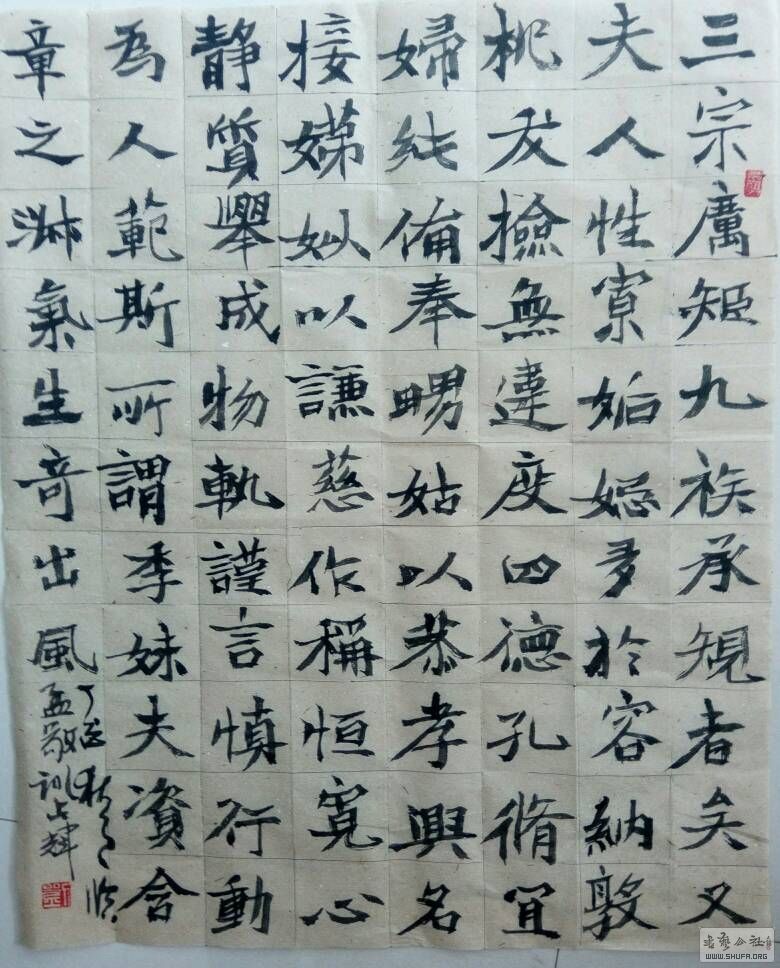 三宗厲矩九族承規者矣又
夫人性寡姤娼多於容納敦
桃夭撿無違度四德孔脩宜
婦純備奉甥姑以恭孝興名
接娣姒以謙慈作稱恒寬心
靜質舉成物軌謹言慎行動
為人範斯所謂季妹夫資含
章之淋氣生奇出風
丁酉秋月臨
孟敬訓
WWW.SHUFA.ORG